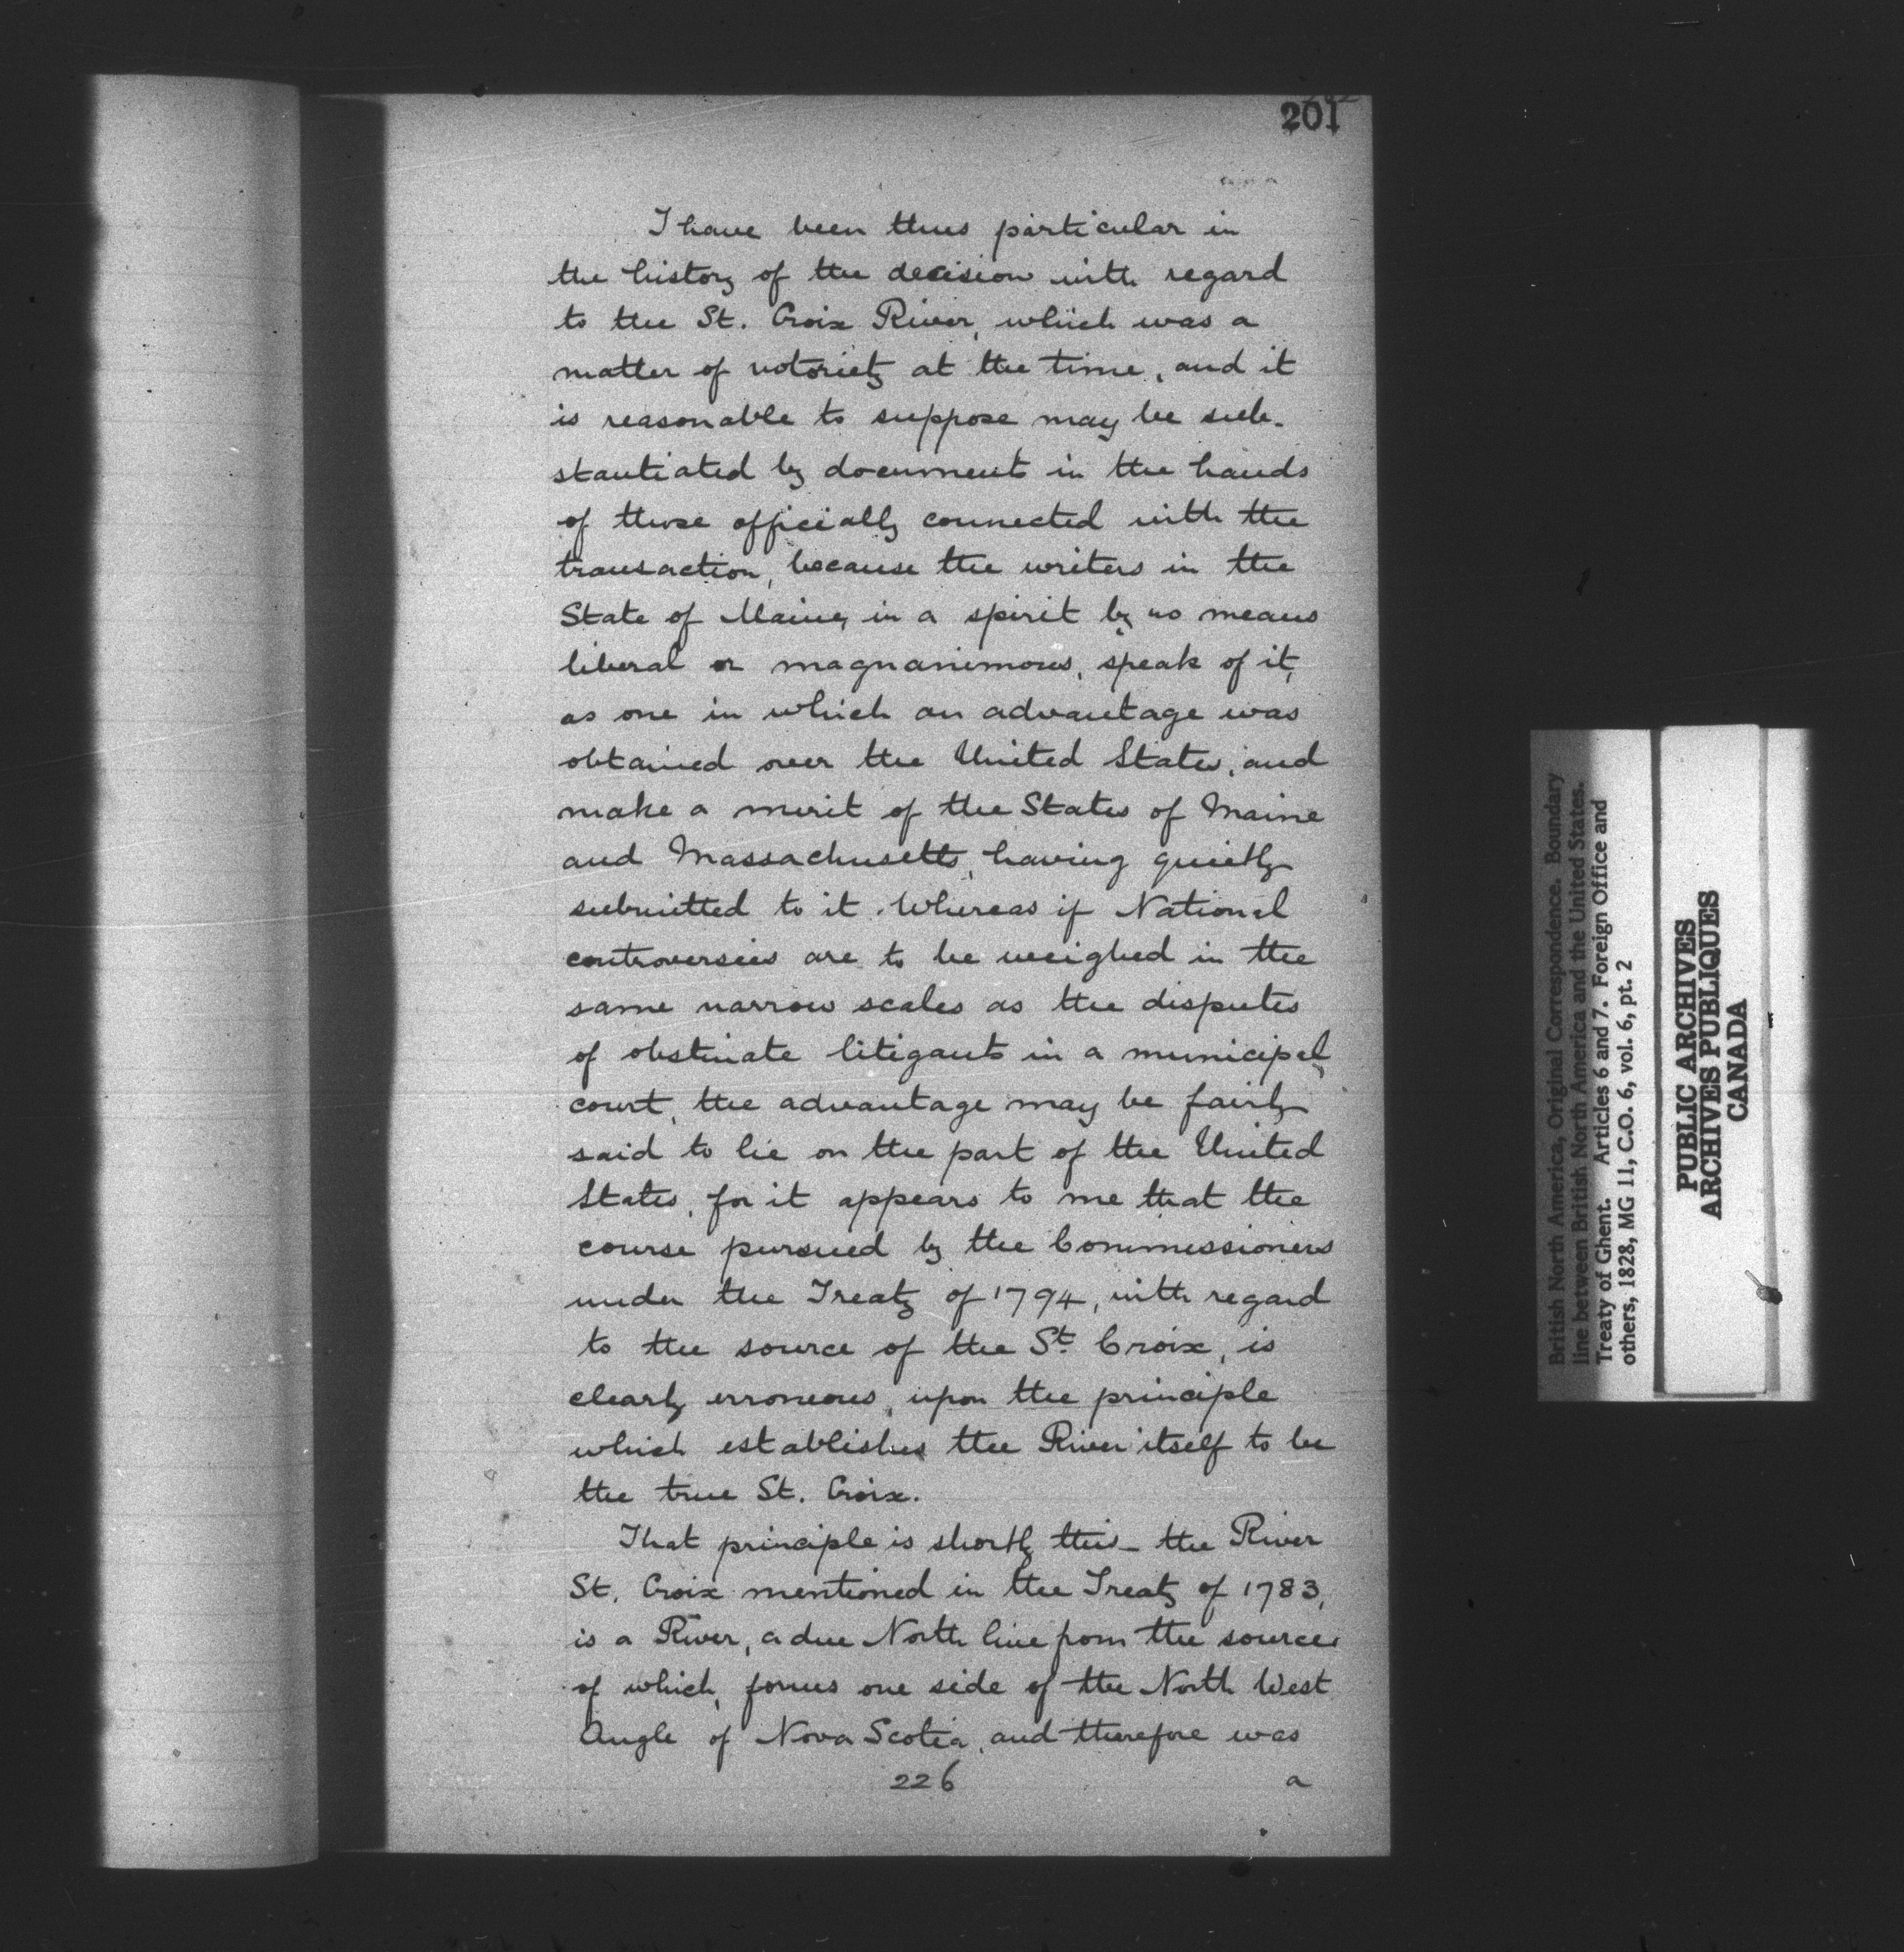 201
I have been thus particular in
the history of the decision with regard
to the St. Croix River, which was a
matter of notoriety at the time, and it
is reasonable to suppose may be sub-
stantiated by documents in the hands
of those officially connected with the
transaction, because the writers in the
State of Maine, in a spirit by no means
liberal or magnanimous, speak of it,
as one in which an advantage was
obtained over the United States, and
make a merit of the States of Maine
and Massachusetts, having quietly
submitted to it. Whereas if National
controversies are to be weighed in the
same narrow scales as the disputes
of obstinate litigants in a municipal
court, the advantage may be fairly
said to lie on the part of the United
States, for it appears to me that the
course pursued by the Commissioners
under the Treaty of 1794, with regard
to the source of the St. Croix, is
clearly erroneous, upon the principle
which establishes the River itself to be
the true St. Croix.
That principle is shortly this - the River
St. Croix mentioned in the Treaty of 1783,
is a River, a due North line from the source
of which, forms one side of the North West
Angle of Nova Scotia, and therefore was
226 a
British North America, Original Correspondence. Boundary
line between British North America and the United States.
Treaty of Ghent. Articles 6 and 7. Foreign Office and
others, 1828, MG 11, C.O. 6, vol. 6, pt. 2
PUBLIC ARCHIVES
ARCHIVES PUBLIQUES
CANADA